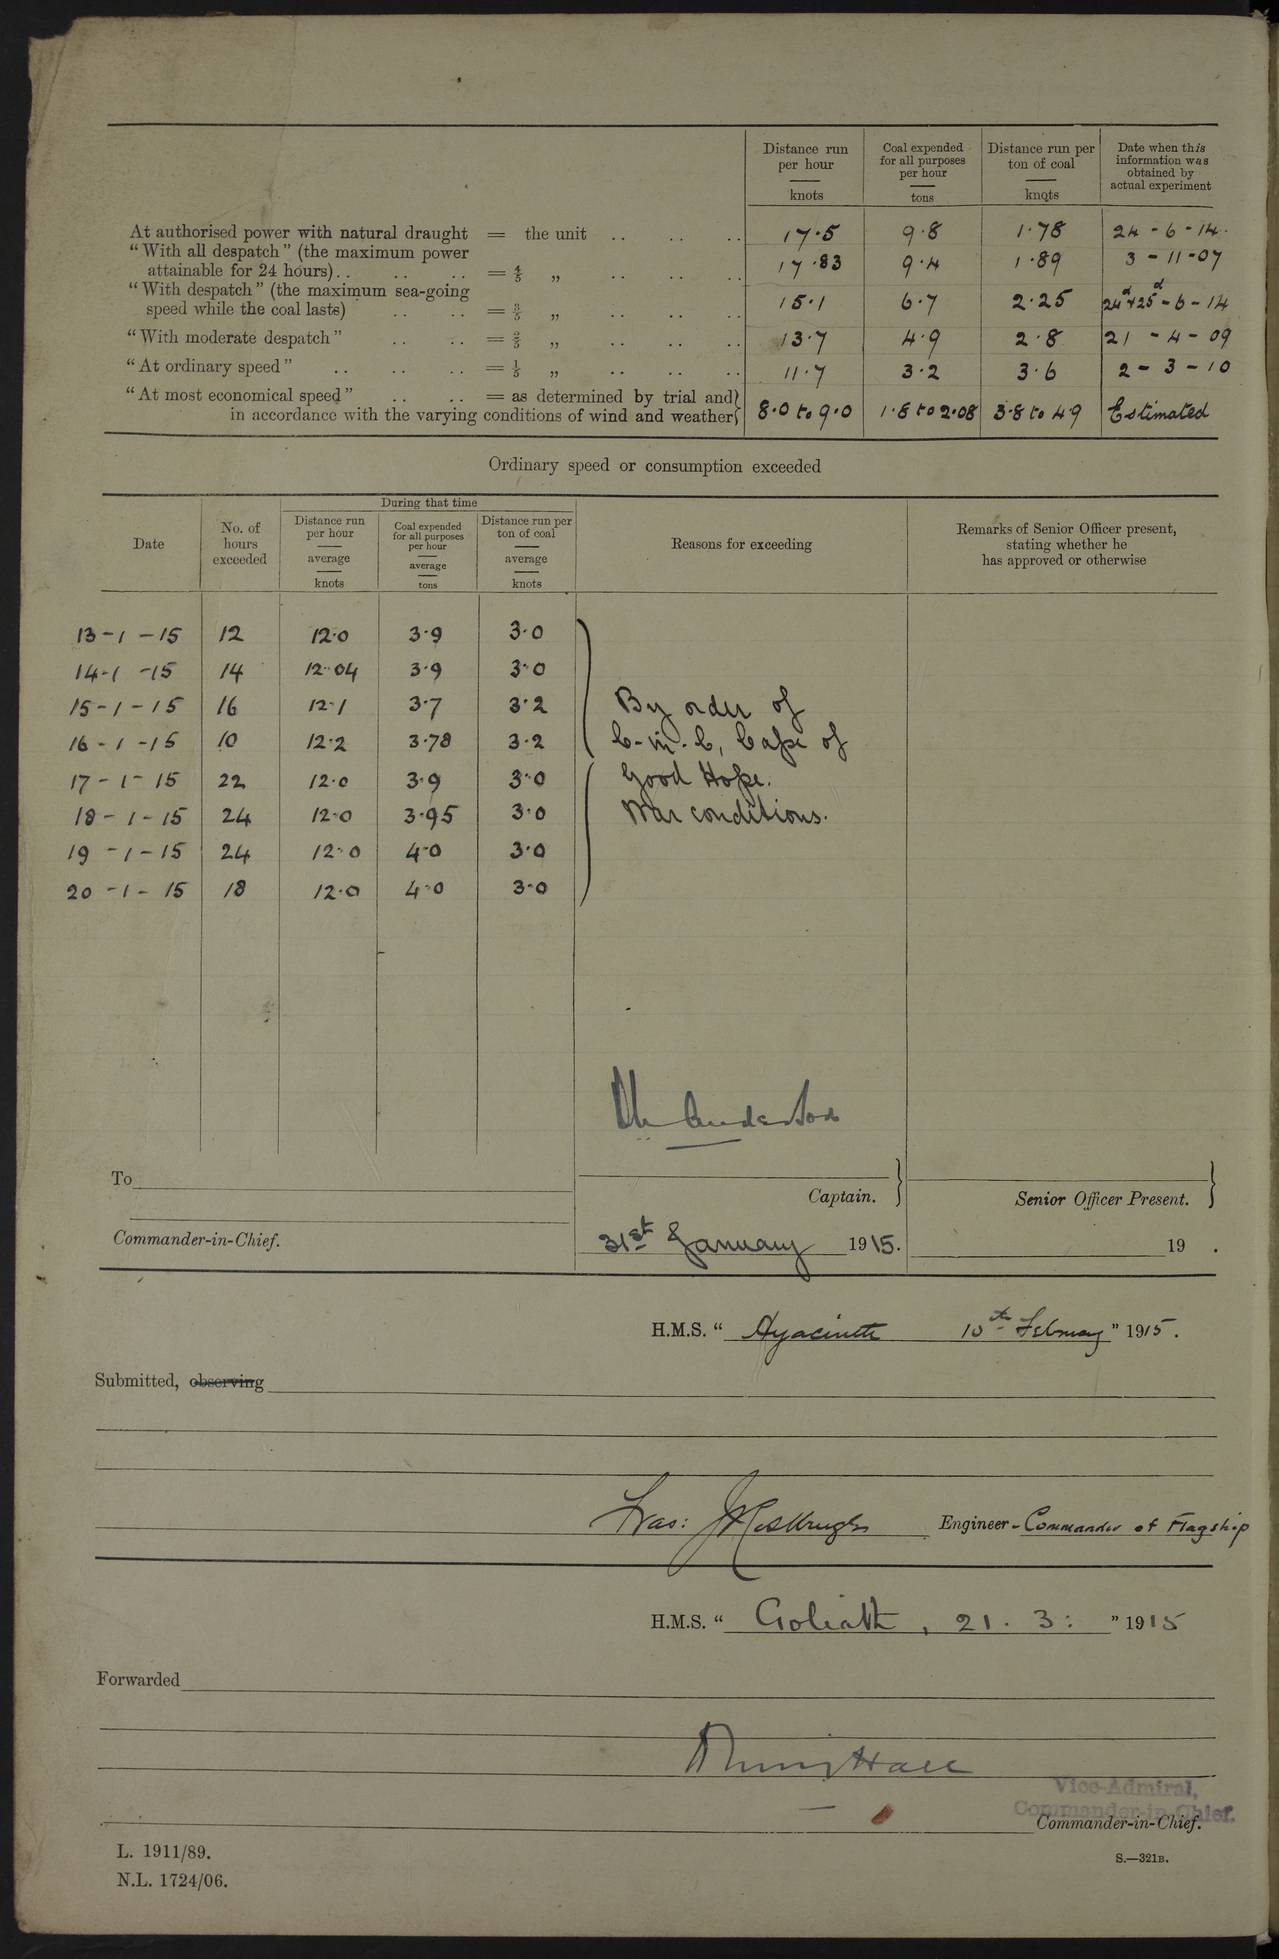 Distance run per hour — knots
Coal expended for all purposes per hour — tons
Distance run per ton of coal — knots
Date when this information was obtained by actual experiment
At authorised power with natural draught = the unit .. .. .. 17.5 9.8 1.78 24-6-14.
"With all despatch" (the maximum power
attainable for 24 hours) .. .. .. = 4/5 „ .. .. .. 17.83 9.4 1.89 3-11-07
"With despatch" (the maximum sea-going
speed while the coal lasts) .. .. = 3/5 „ .. .. .. 15.1 6.7 2.25 24th & 25th-6-14
"With moderate despatch" .. .. = 2/5 „ .. .. .. 13.7 4.9 2.8 21-4-09
"At ordinary speed" .. .. .. = 1/5 „ .. .. .. 11.7 3.2 3.6 2-3-10
"At most economical speed" .. .. = as determined by trial and
in accordance with the varying conditions of wind and weather } 8.0 to 9.0 1.8 to 2.08 3.8 to 4.9 Estimated
Ordinary speed or consumption exceeded
Date
No. of hours exceeded
During that time
Distance run per hour — average — knots
Coal expended for all purposes per hour — average — tons
Distance run per ton of coal — average — knots
Reasons for exceeding
Remarks of Senior Officer present, stating whether he has approved or otherwise
13-1-15 12 12.0 3.9 3.0
14-1-15 14 12.04 3.9 3.0
15-1-15 16 12.1 3.7 3.2 By order of
16-1-15 10 12.2 3.78 3.2 C-in-C, Cape of
17-1-15 22 12.0 3.9 3.0 Good Hope.
18-1-15 24 12.0 3.95 3.0 War conditions.
19-1-15 24 12.0 4.0 3.0
20-1-15 18 12.0 4.0 3.0
To
Captain.
Senior Officer Present.
Commander-in-Chief.
31st January 1915.
19 .
H.M.S. " Hyacinth 10th February " 1915.
Submitted, observing
Engineer-Commander of Flagship
H.M.S. " Goliath, 21.3: " 1915
Forwarded
Vice-Admiral,
Commander-in-Chief.
Commander-in-Chief.
L. 1911/89.
S.—321B.
N.L. 1724/06.